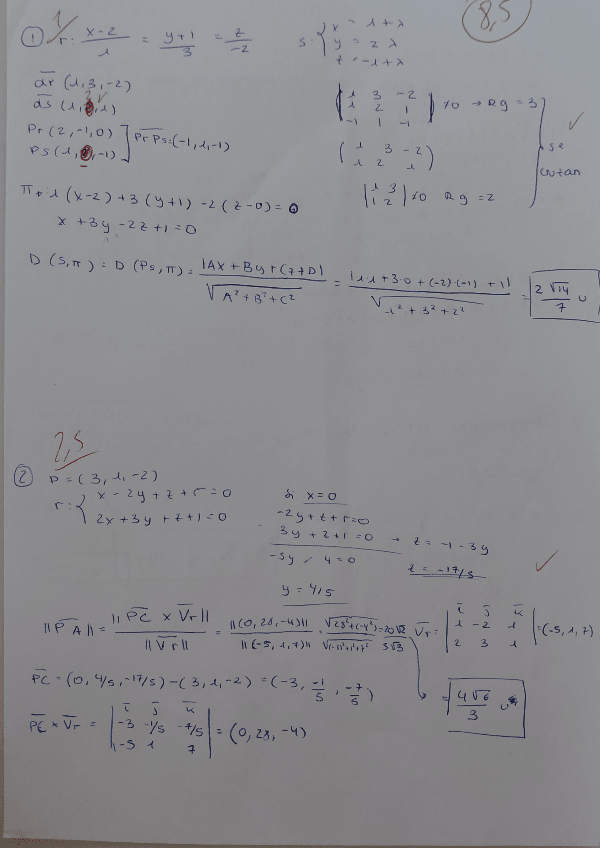 8,5
1
① r: x-2/1 = y+1/3 = z/-2    s: { x = 1+λ
y = 2λ
z = -1+λ
dr (1,3,-2)
ds (1,2,1)
| 1 3 -2 |
| 1 2 1 | ≠0 → Rg = 3
| -1 1 -1 |
Pr (2,-1,0) ] PrPs = (-1,1,-1)
Ps (1,0,-1)
( 1 3 -2 )
( 1 2 1 )
se cruzan
| 1 3 |
| 1 2 | ≠0 Rg = 2
π: 1(x-2)+3(y+1)-2(z-0)=0
x+3y-2z+1=0
D(s,π) = D(Ps,π) = |Ax+By+Cz+D| / √A²+B²+C² = |1·1+3·0+(-2)·(-1)+1| / √1²+3²+2² = 2√14/7 u
2,5
② P=(3,1,-2)
r: { x-2y+z+5=0
2x+3y+z+1=0
Si x=0
-2y+z+5=0
3y+z+1=0 → z = -1-3y
-5y+4=0    z = -17/5
y = 4/5
||PA|| = ||PC × Vr|| / ||Vr|| = ||(0,28,-4)|| / ||(-5,1,7)|| = √28²+(-4²) / √(-5)²+1²+7² = 20√2 / 5√3
Vr = | i j k |
| 1 -2 1 | = (-5,1,7)
| 2 3 1 |
PC = (0, 4/5, -17/5) - (3,1,-2) = (-3, -1/5, -7/5)
= 4√6/3 u
PC × Vr = | i j k |
| -3 -1/5 -7/5 | = (0,28,-4)
| -5 1 7 |